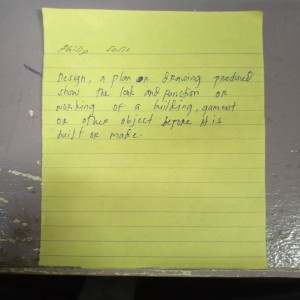 Design, a plan or drawing produced
show the look and function or
working of a building, garment
or other object before it is
built or made.